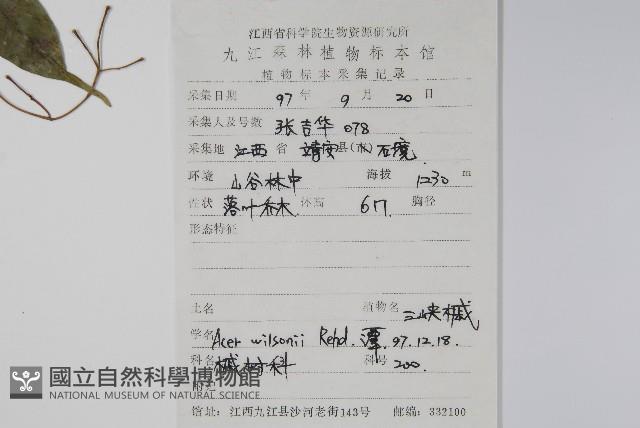 江西省科学院生物资源研究所
九江森林植物标本馆
植物标本采集记录
采集日期 97 年 9 月 20 日
采集人及号数 张吉华 078
采集地 江西 省 靖安 县(市) 石境
环境 山谷林中 海拔 1230 m
性状 落叶乔木 体高 6m 胸径
形态特征
土名 植物名 三峡槭
学名 Acer wilsonii Rehd. 谭 97.12.18.
科名 槭树科 科号 200.
附记
國立自然科學博物館
NATIONAL MUSEUM OF NATURAL SCIENCE
馆址:江西九江县沙河老街143号 邮编:332100